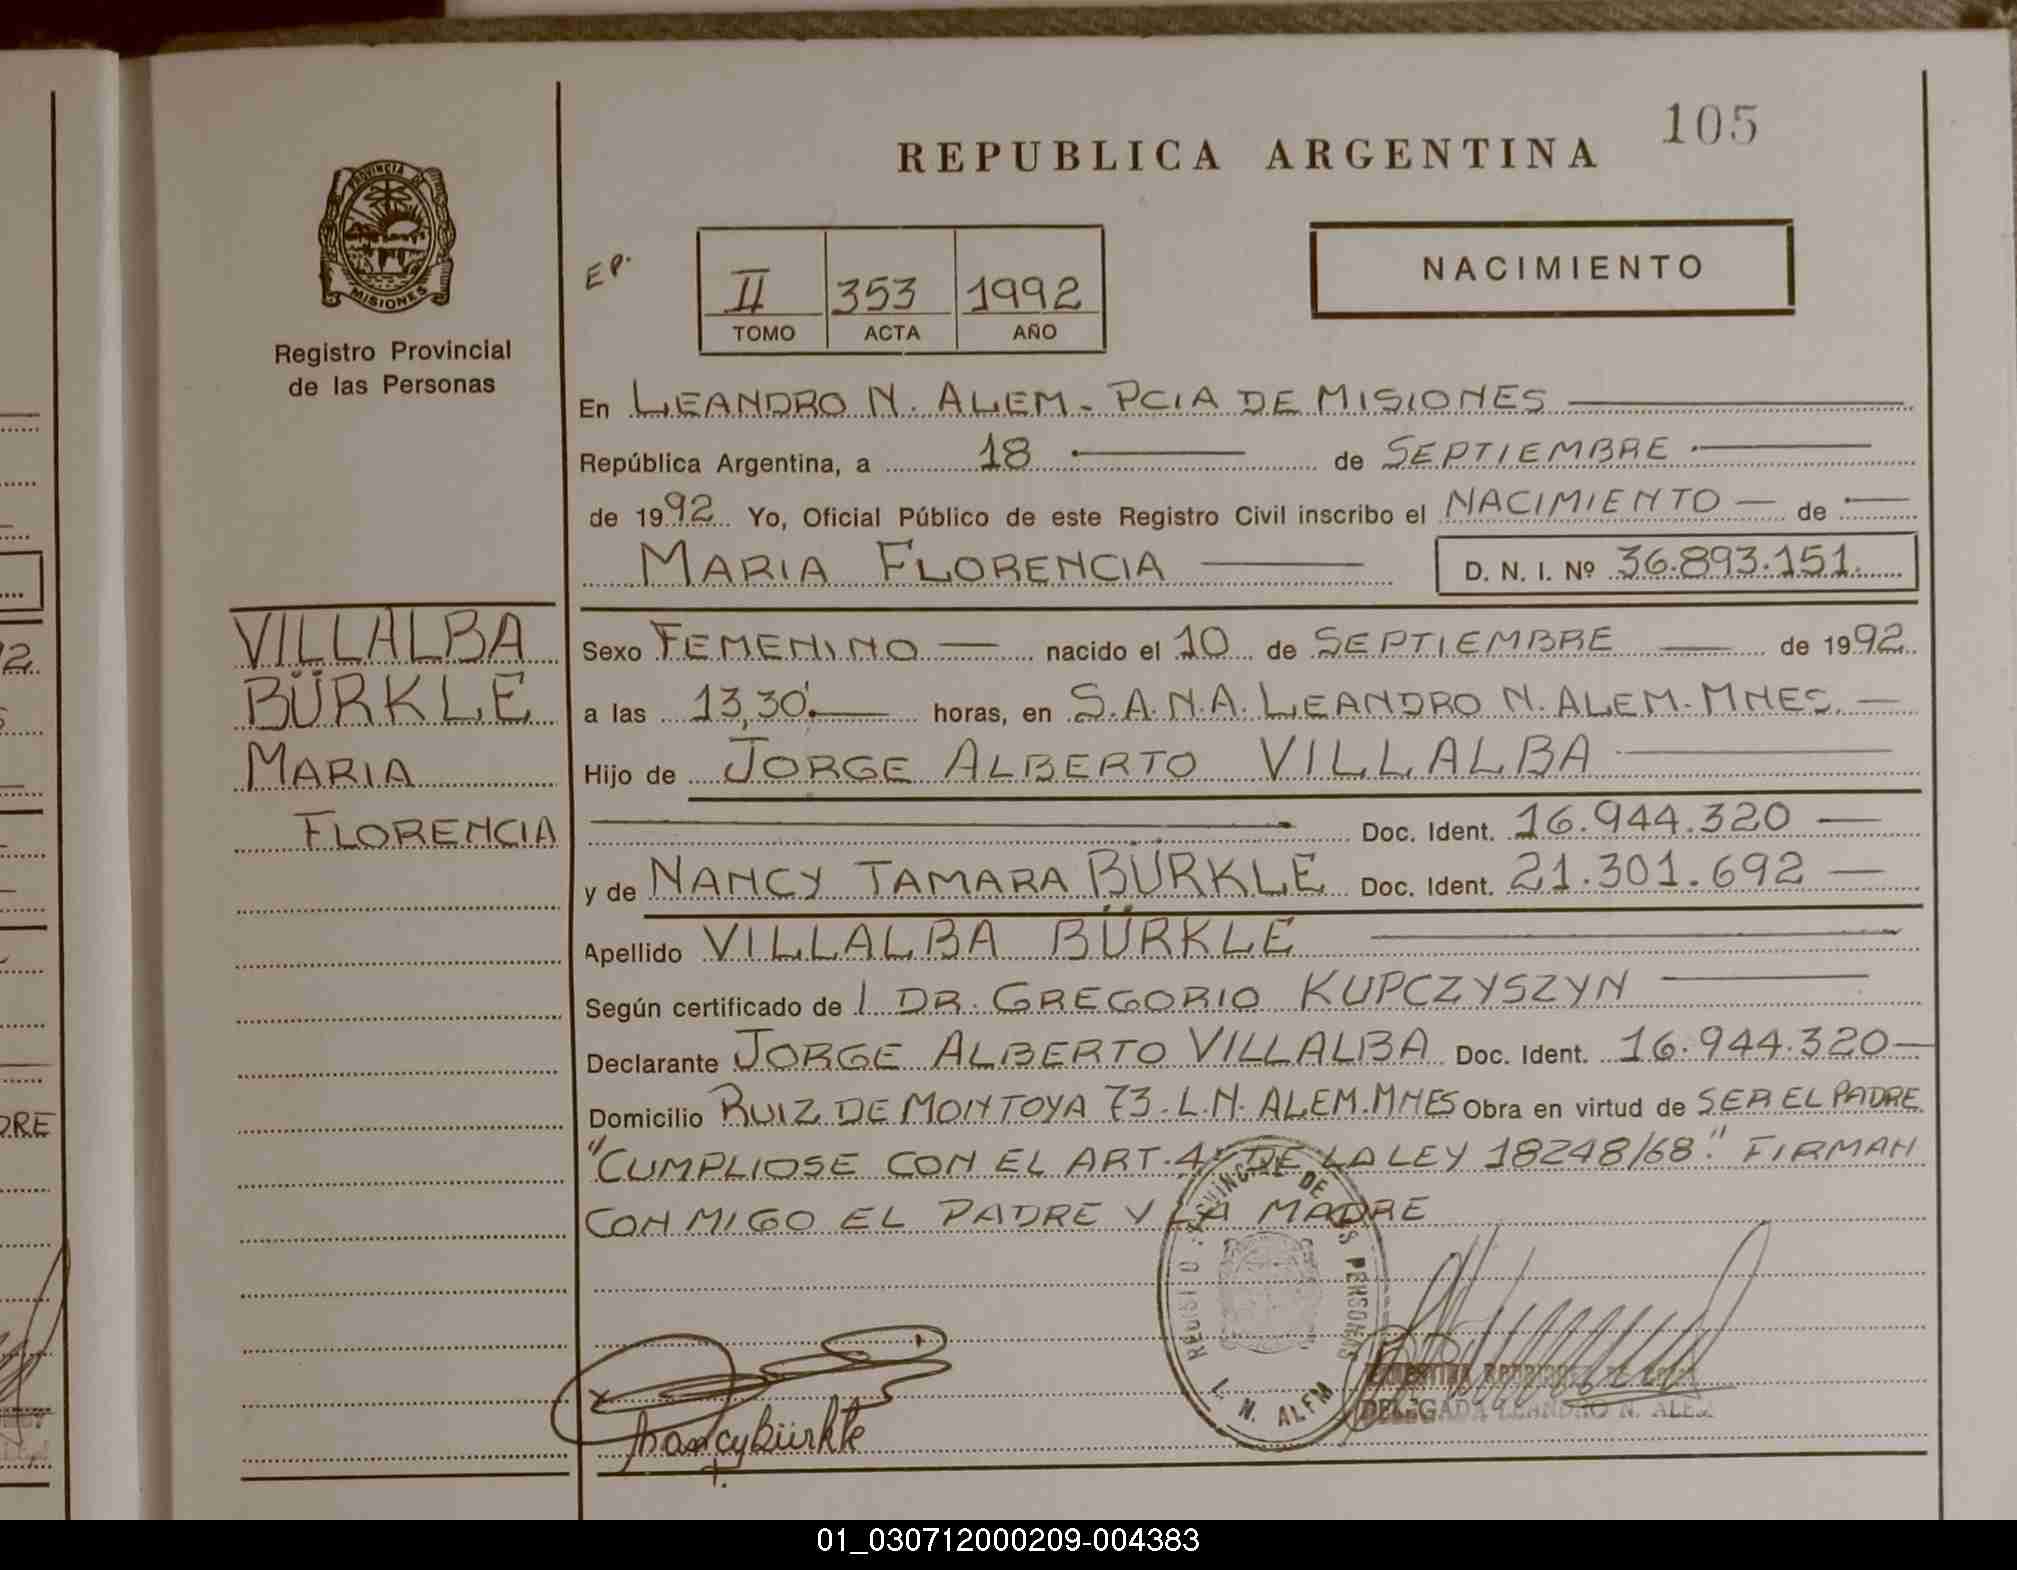 105
REPUBLICA ARGENTINA
PROVINCIA DE
MISIONES
Registro Provincial
de las Personas
EP.
II 353 1992
TOMO ACTA AÑO
NACIMIENTO
En LEANDRO N. ALEM - PCIA DE MISIONES
República Argentina, a 18 de SEPTIEMBRE
de 1992 Yo, Oficial Público de este Registro Civil inscribo el NACIMIENTO de
MARIA FLORENCIA D. N. I. Nº 36.893.151.
VILLALBA
BÜRKLE
MARIA
FLORENCIA
Sexo FEMENINO nacido el 10 de SEPTIEMBRE de 1992
a las 13,30' horas, en S.A.N.A. LEANDRO N. ALEM. MNES.
Hijo de JORGE ALBERTO VILLALBA
Doc. Ident. 16.944.320
y de NANCY TAMARA BÜRKLE Doc. Ident. 21.301.692
Apellido VILLALBA BÜRKLE
Según certificado de l DR. GREGORIO KUPCZYSZYN
Declarante JORGE ALBERTO VILLALBA Doc. Ident. 16.944.320
Domicilio RUIZ DE MONTOYA 73. L.N. ALEM. MNES Obra en virtud de SER EL PADRE
"CUMPLIOSE CON EL ART. 4º DE LA LEY 18248/68". FIRMAN
CONMIGO EL PADRE Y LA MADRE
REGISTRO PROVINCIAL DE LAS PERSONAS
L. N. ALEM
DELEGADA LEANDRO N. ALEM
Nancy Bürkle
2.
DRE
01_030712000209-004383